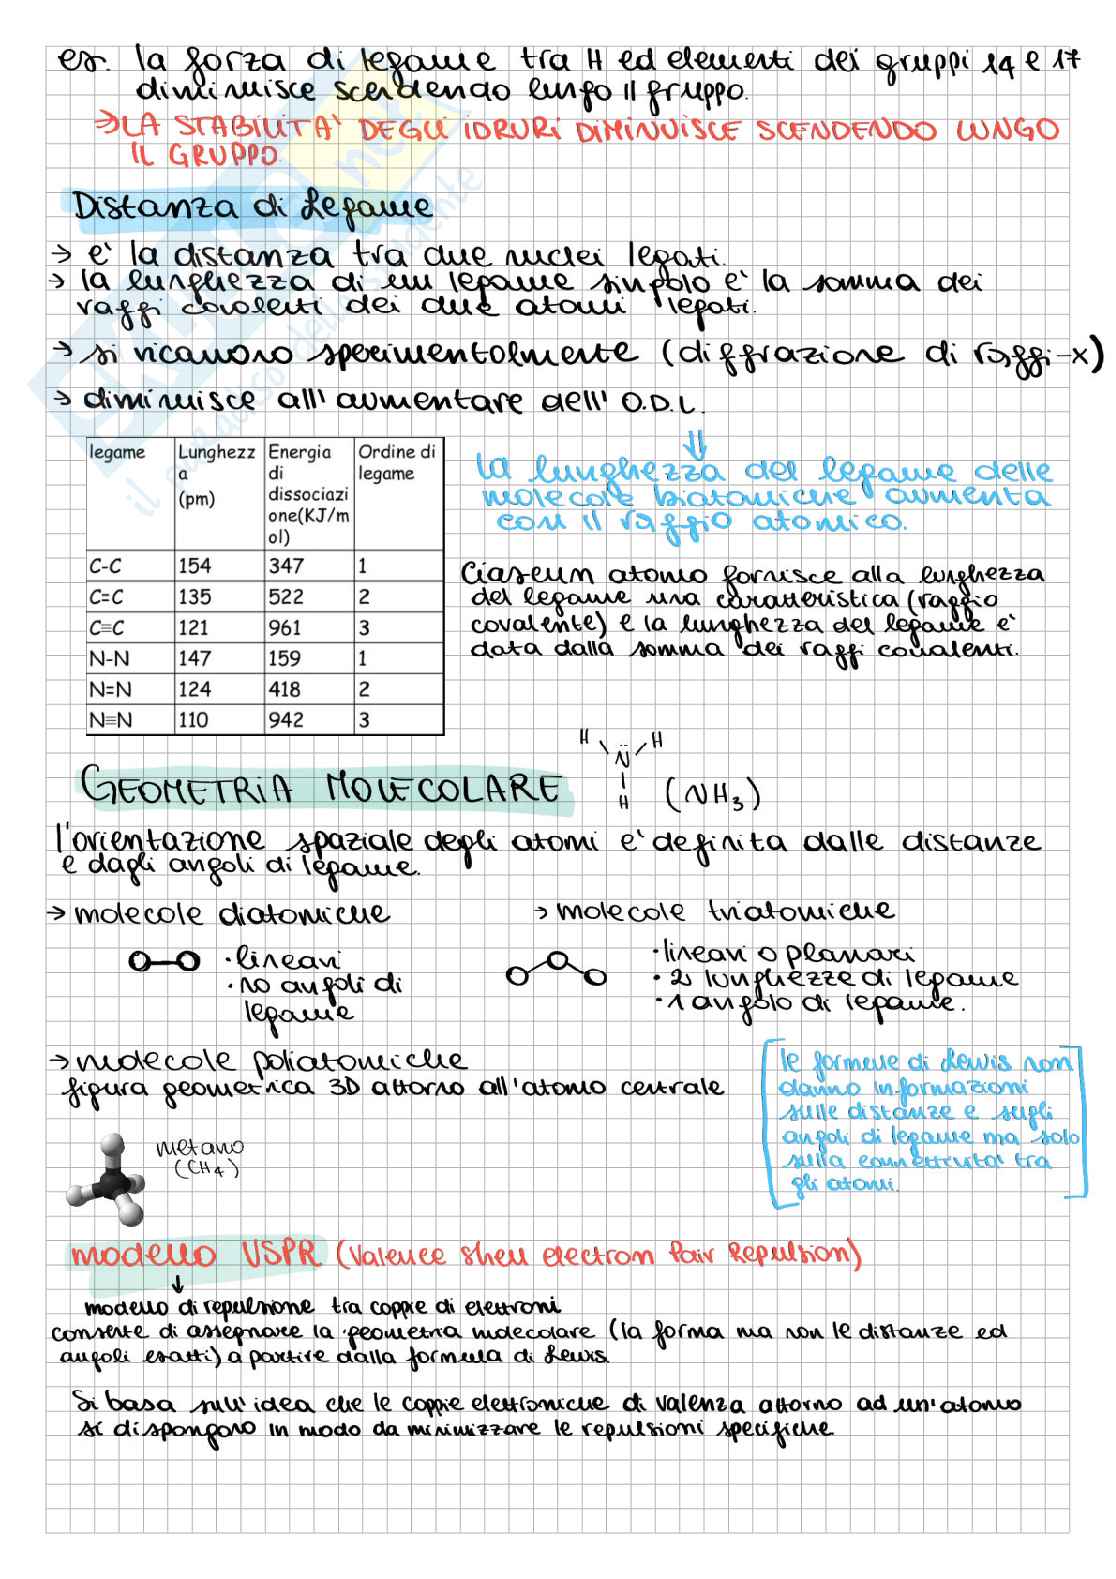 es. la forza di legame tra H ed elementi dei gruppi 14 e 17
diminuisce scendendo lungo il gruppo.
→ LA STABILITA' DEGLI IDRURI DIMINUISCE SCENDENDO LUNGO
IL GRUPPO.
Distanza di legame
→ e' la distanza tra due nuclei legati.
→ la lunghezza di un legame singolo e' la somma dei
raggi covalenti dei due atomi legati.
→ si ricavano sperimentalmente (diffrazione di raggi-x)
→ diminuisce all'aumentare dell' O.D.L.
⇓
la lunghezza del legame delle
molecole biatomiche aumenta
con il raggio atomico.
legame | Lunghezza (pm) | Energia di dissociazione(KJ/mol) | Ordine di legame
C-C | 154 | 347 | 1
C=C | 135 | 522 | 2
C≡C | 121 | 961 | 3
N-N | 147 | 159 | 1
N=N | 124 | 418 | 2
N≡N | 110 | 942 | 3
Ciascun atomo fornisce alla lunghezza
del legame una caratteristica (raggio
covalente) e la lunghezza del legame e'
data dalla somma dei raggi covalenti.
GEOMETRIA MOLECOLARE
H N H
H
(NH₃)
l'orientazione spaziale degli atomi e' definita dalle distanze
e dagli angoli di legame.
→ molecole diatomiche
· lineari
· no angoli di
legame
→ molecole triatomiche
· lineari o planari
· 2 lunghezze di legame
· 1 angolo di legame.
→ molecole poliatomiche
figura geometrica 3D attorno all'atomo centrale
metano
(CH₄)
le formule di Lewis non
danno informazioni
sulle distanze e sugli
angoli di legame ma solo
sulla connettivita' tra
gli atomi.
modello VSPR (Valence Shell electron Pair Repulsion)
↓
modello di repulsione tra coppie di elettroni
consente di assegnare la geometria molecolare (la forma ma non le distanze ed
angoli esatti) a partire dalla formula di Lewis.
Si basa sull'idea che le coppie elettroniche di valenza attorno ad un'atomo
si dispongono in modo da minimizzare le repulsioni specifiche